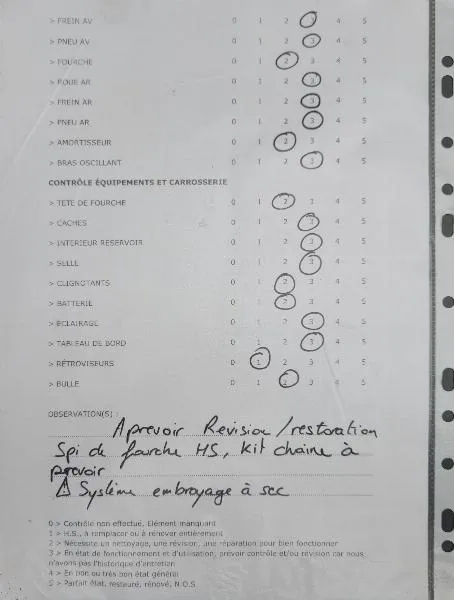 > FREIN AV 0 1 2 3 4 5
> PNEU AV 0 1 2 3 4 5
> FOURCHE 0 1 2 3 4 5
> ROUE AR 0 1 2 3 4 5
> FREIN AR 0 1 2 3 4 5
> PNEU AR 0 1 2 3 4 5
> AMORTISSEUR 0 1 2 3 4 5
> BRAS OSCILLANT 0 1 2 3 4 5
CONTRÔLE ÉQUIPEMENTS ET CARROSSERIE
> TETE DE FOURCHE 0 1 2 3 4 5
> CACHES 0 1 2 3 4 5
> INTERIEUR RESERVOIR 0 1 2 3 4 5
> SELLE 0 1 2 3 4 5
> CLIGNOTANTS 0 1 2 3 4 5
> BATTERIE 0 1 2 3 4 5
> ECLAIRAGE 0 1 2 3 4 5
> TABLEAU DE BORD 0 1 2 3 4 5
> RÉTROVISEURS 0 1 2 3 4 5
> BULLE 0 1 2 3 4 5
OBSERVATION(S) :
A prevoir Revision / restoration
Spi de fourche HS, Kit chaine à
prevoir
⚠ Système embrayage à sec
0 > Contrôle non effectué, Elément manquant
1 > H.S., à remplacer ou à rénover entièrement
2 > Nécessite un nettoyage, une révision, une réparation pour bien fonctionner
3 > En état de fonctionnement et d'utilisation, prévoir contrôle et/ou révision car nous
n'avons pas l'historique d'entretien
4 > En bon ou très bon état général
5 > Parfait état, restauré, rénové, N.O.S